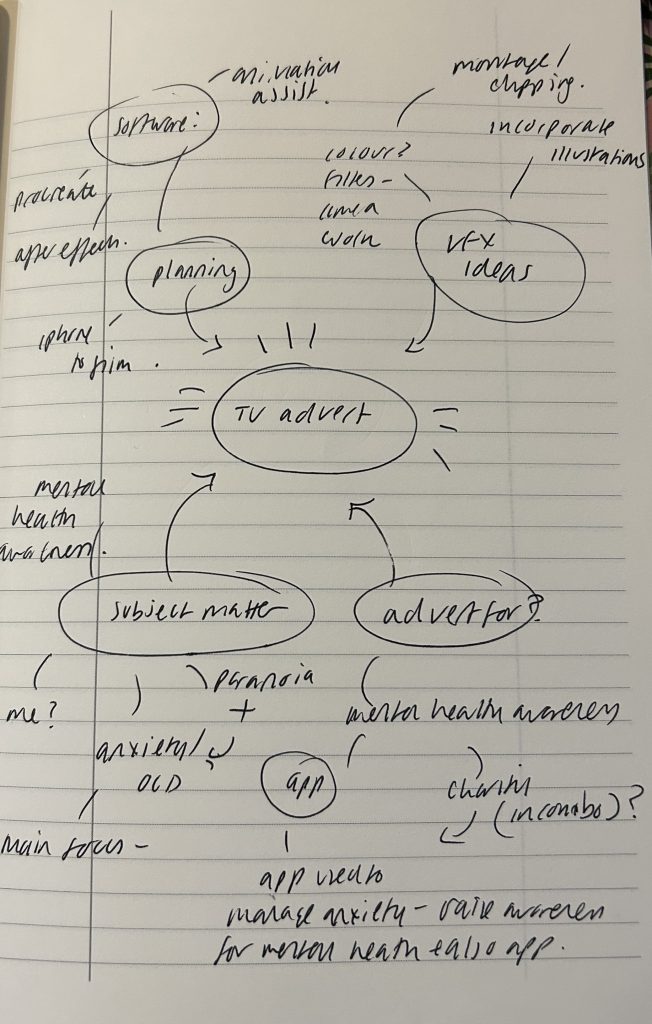 animation
assist.
software:
procreate
after effects.
planning
iphone
to film.
montage/
clipping.
incorporate
illustrations
colour?
filter -
camea
work
VFX
ideas
TV advert
mental
health
awareness.
subject matter
me?
anxiety/
OCD
main focus -
paranoia
+
advert for?
mental health awareness
app
charity
(in combo)?
app used to
manage anxiety - raise awareness
for mental heath + also app.